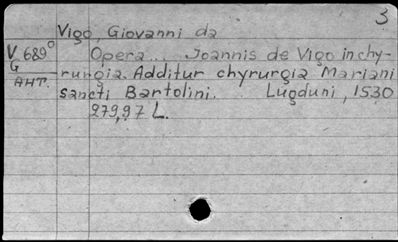 3
Vigo, Giovanni da
V 689° Opera... Joannis de Vigo in chy-
G rurgia. Additur chyrurgia Mariani
АНТ. sancti Bartolini. Lugduni, 1530
279,97 L.